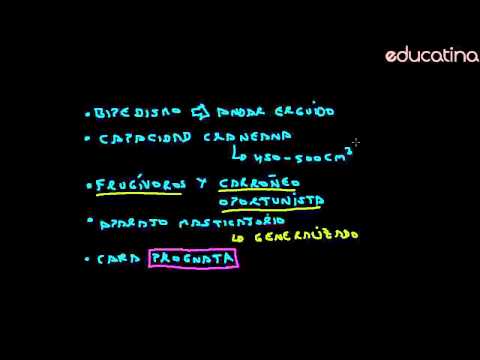 educatina
• BIPEDISMO ⇨ ANDAR ERGUIDO
• CAPACIDAD CRANEANA
↳ 450-500 cm³
• FRUGÍVOROS Y CARROÑEO
OPORTUNISTA
• APARATO MASTICATÓRIO
↳ GENERALIZADO
• CARA PROGNATA